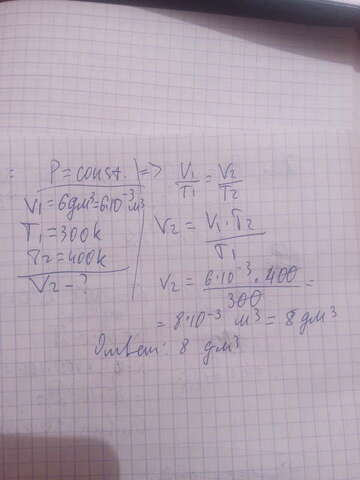 : P = const. | => V1/T1 = V2/T2
V1 = 6 дм³ = 6·10⁻³ м³
T1 = 300 k
V2 = V1·T2/T1
T2 = 400 k
V2 - ?
V2 = 6·10⁻³·400/300 =
= 8·10⁻³ м³ = 8 дм³
Ответ: 8 дм³